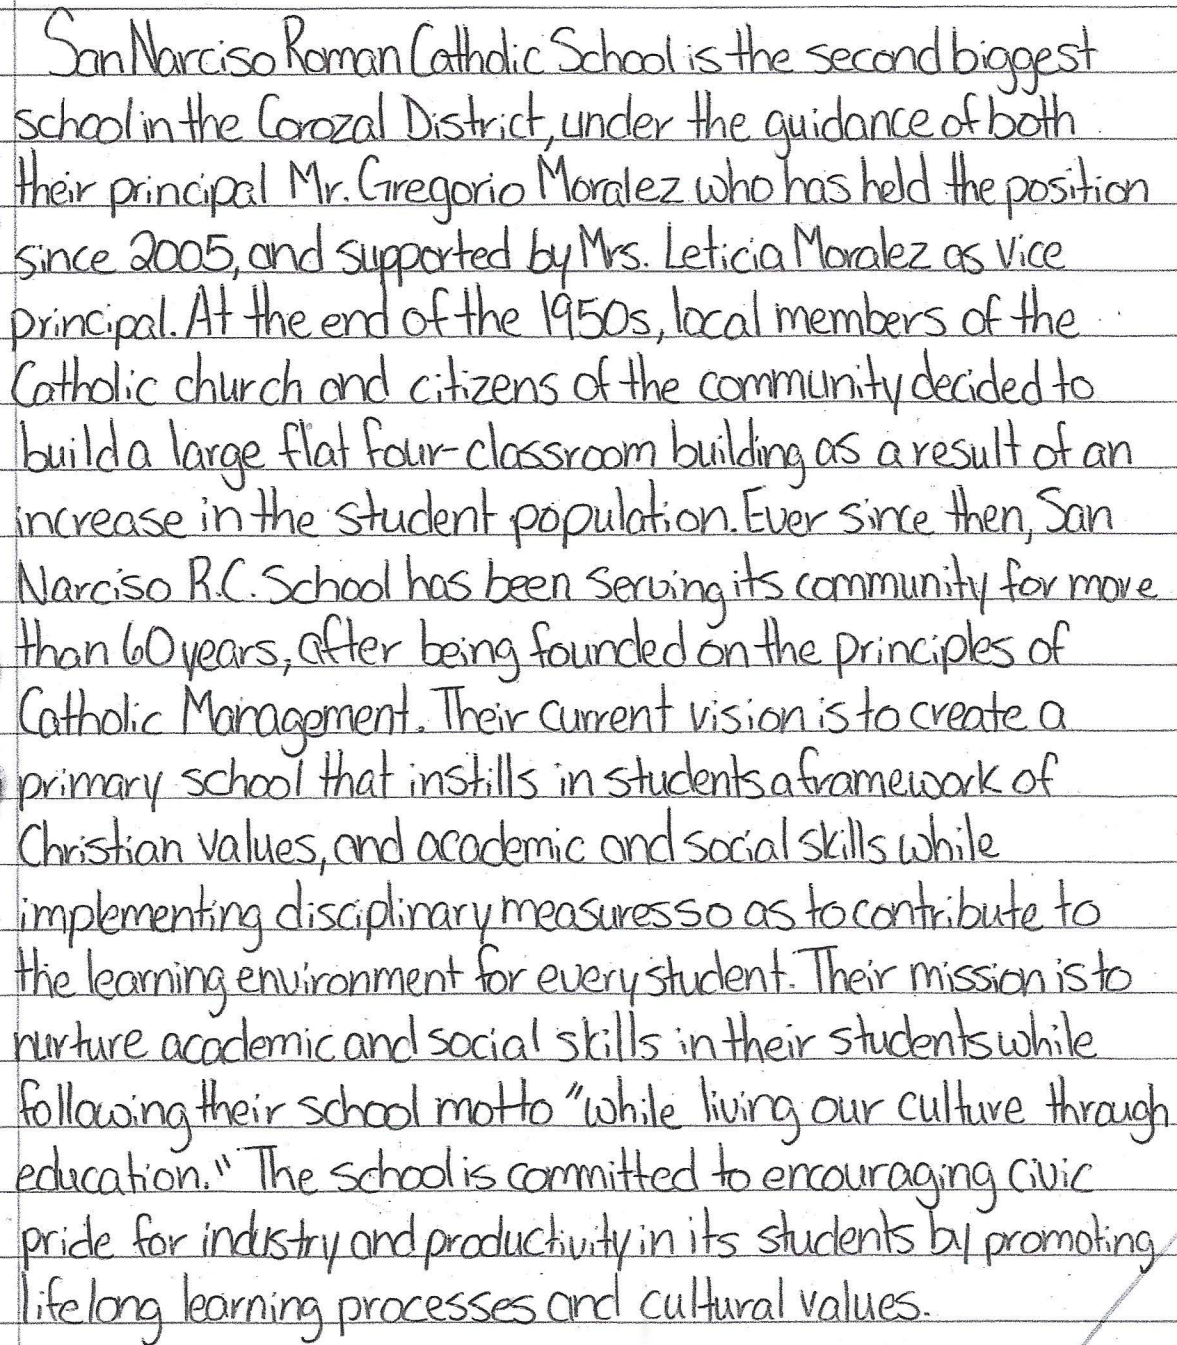 San Narciso Roman Catholic School is the second biggest
school in the Corozal District, under the guidance of both
their principal Mr. Gregorio Moralez who has held the position
since 2005, and supported by Mrs. Leticia Moralez as vice
principal. At the end of the 1950s, local members of the
Catholic church and citizens of the community decided to
build a large flat four-classroom building as a result of an
increase in the student population. Ever since then, San
Narciso R.C. School has been serving its community for more
than 60 years, after being founded on the principles of
Catholic Management. Their current vision is to create a
primary school that instills in students a framework of
Christian values, and academic and social skills while
implementing disciplinary measures so as to contribute to
the learning environment for every student. Their mission is to
nurture academic and social skills in their students while
following their school motto "while living our culture through
education." The school is committed to encouraging civic
pride for industry and productivity in its students by promoting
lifelong learning processes and cultural values.